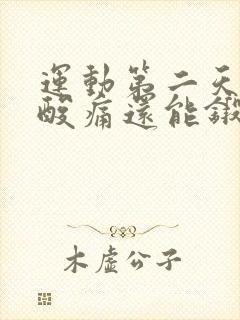 運動第二天
酸痛還能鍛
木虛公子